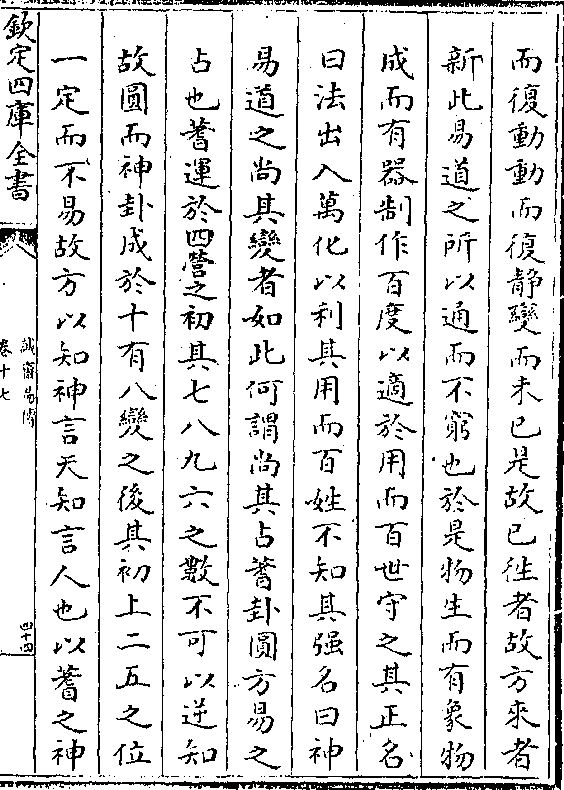 而復動動而復靜變而未已是故已徃者故方來者
新此易道之所以通而不窮也於是物生而有象物
成而有器制作百度以適於用而百世守之其正名
曰法出入萬化以利其用而百姓不知其强名曰神
易道之尚其變者如此何謂尚其占蓍卦圓方易之
占也蓍運於四營之初其七八九六之數不可以逆知
故圓而神卦成於十有八變之後其初上二五之位
一定而不易故方以知神言天知言人也以蓍之神
欽定四庫全書
誠齋易傳
卷十七
四十四